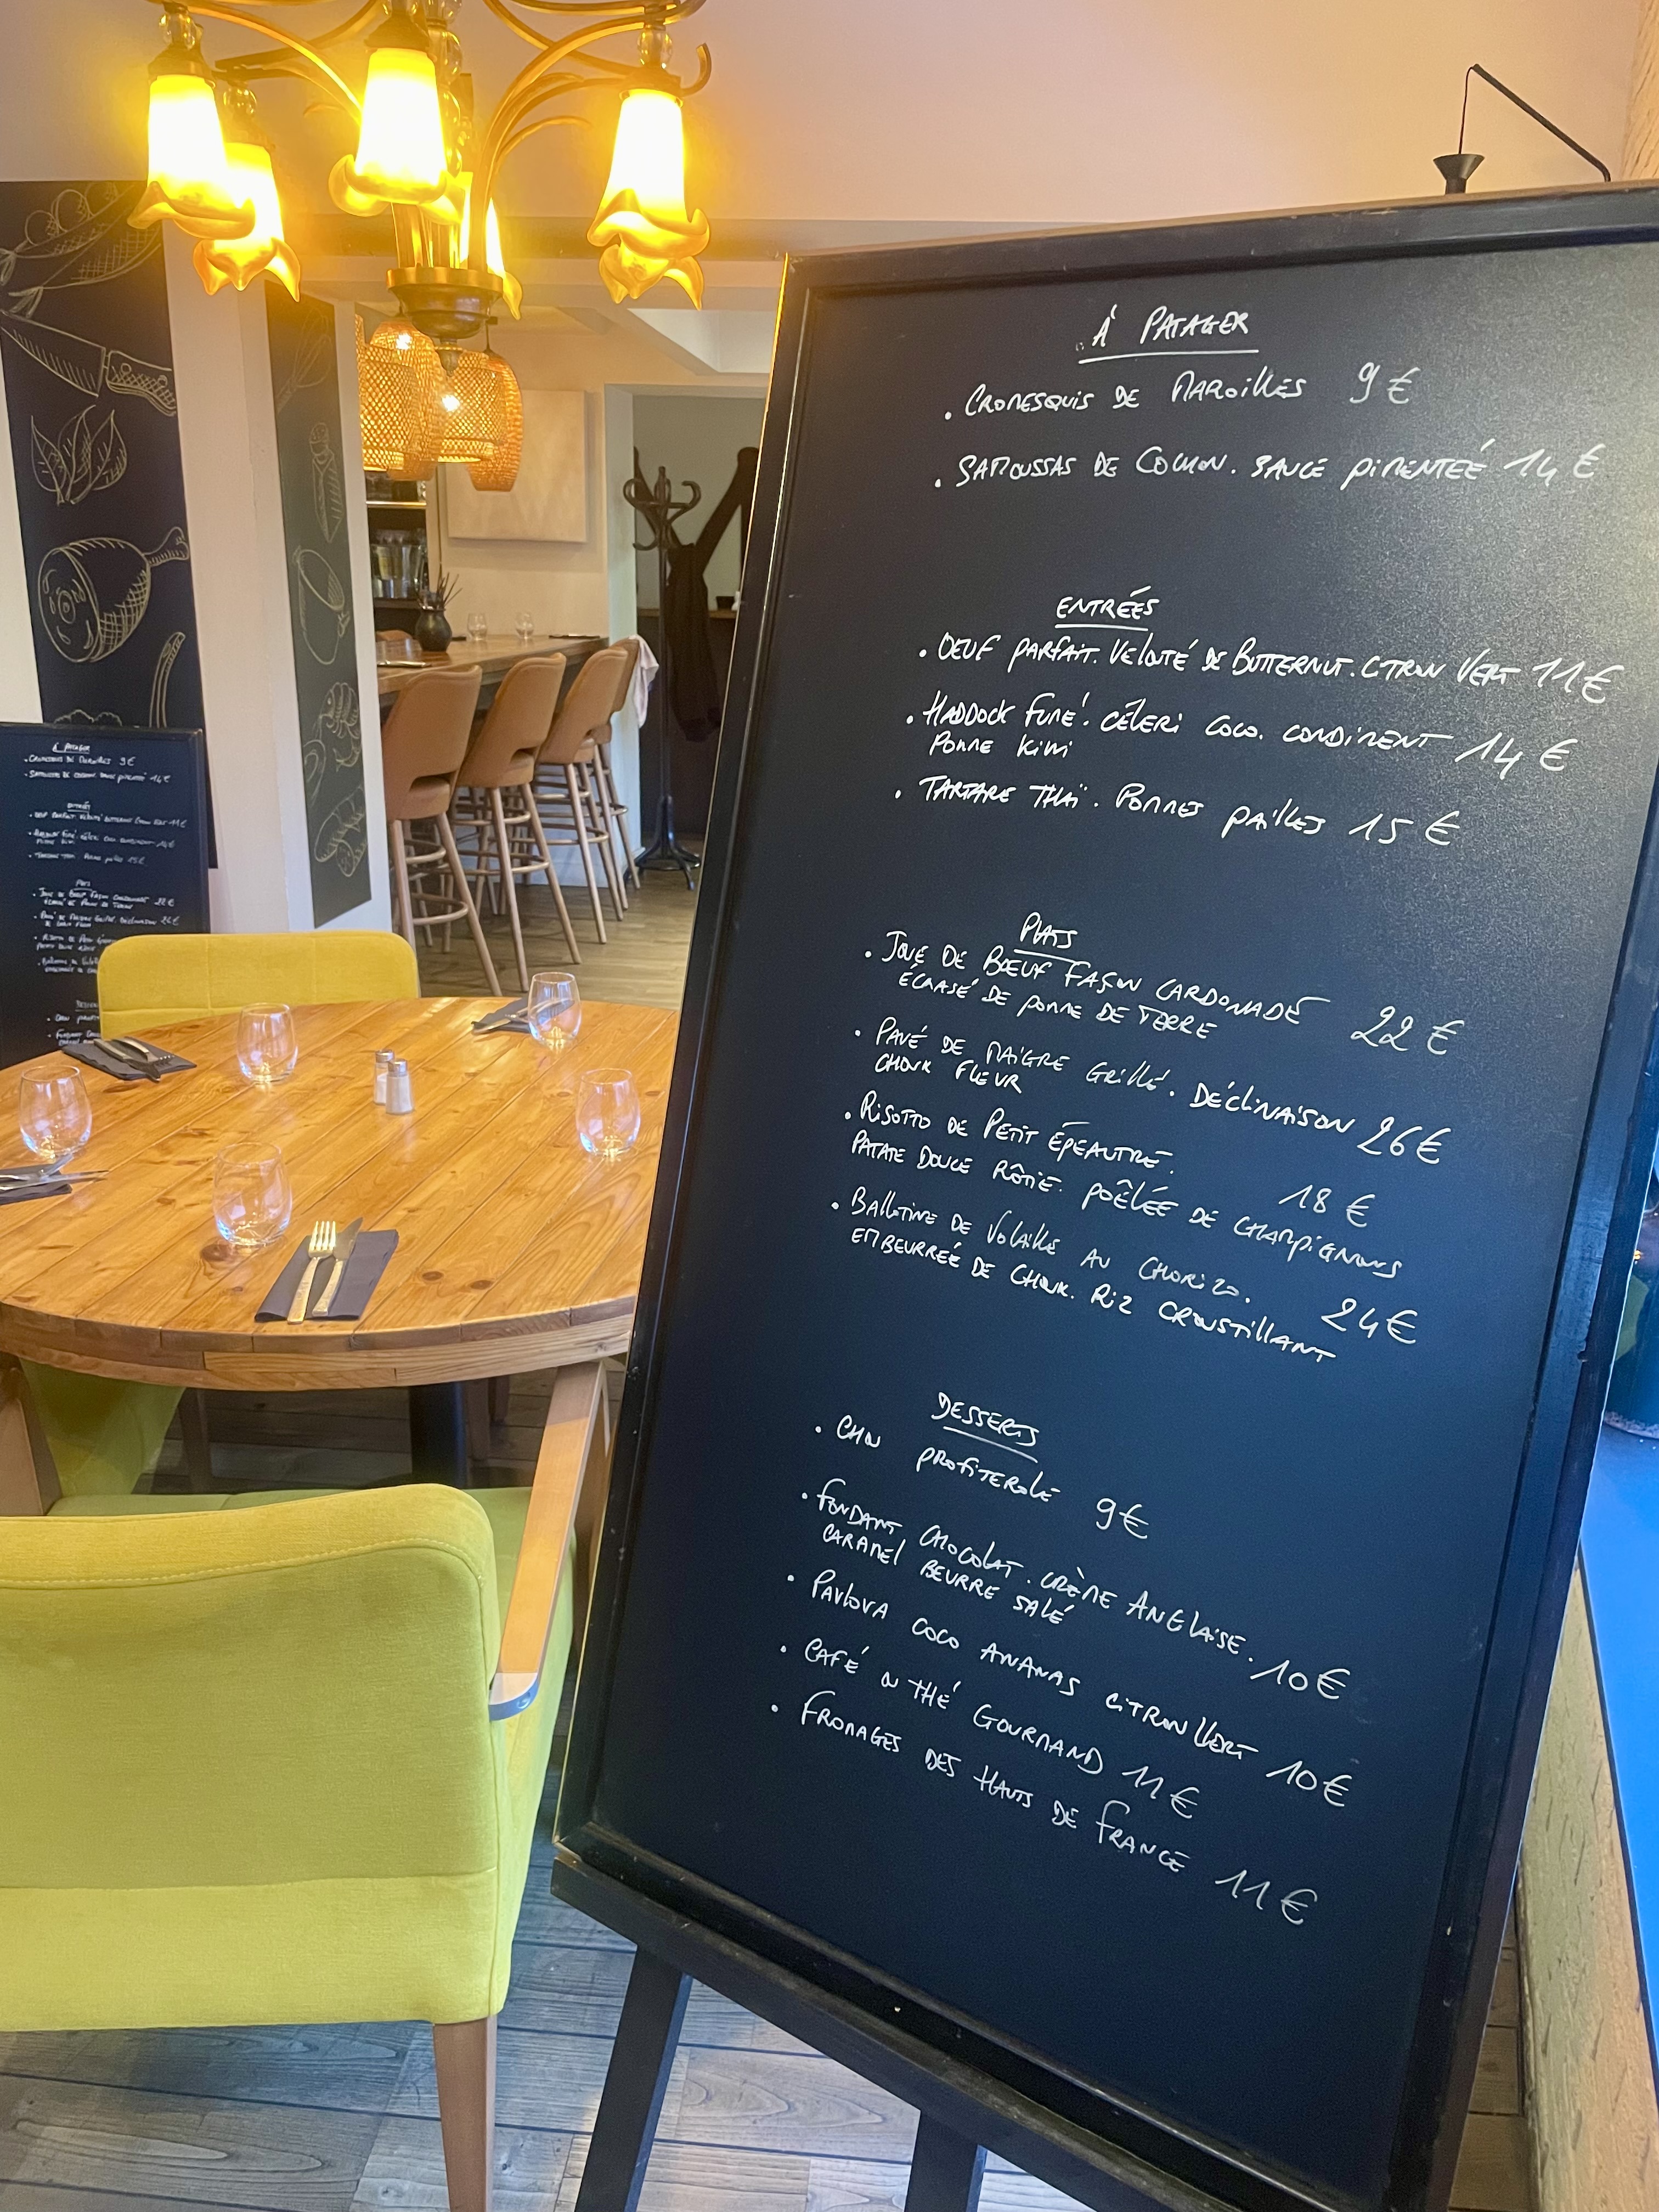 À PATAGER
. CROMESQUIS DE MAROILLES 9 €
. SAMOUSSAS DE COCHON. SAUCE PIMENTEÉ 14 €
ENTRÉES
. OEUF PARFAIT. VELOUTÉ DE BUTTERNUT. CITRON VERT 11 €
. HADDOCK FUMÉ. CÉLERI COCO. CONDIMENT 14 €
POMME KIWI
. TARTARE THAÏ. POMMES PAILLES 15 €
PLATS
. JOUE DE BŒUF FAÇON CARBONADE 22 €
ÉCRASÉ DE POMME DE TERRE
. PAVÉ DE MAIGRE GRILLÉ. DÉCLINAISON 26 €
CHOUX FLEUR
. RISOTTO DE PETIT ÉPEAUTRE. 18 €
PATATE DOUCE RÔTIE. POÊLÉE DE CHAMPIGNONS
. BALLOTINE DE VOLAILLE AU CHORIZO. 24 €
EMBEURREÉ DE CHOUX. RIZ CROUSTILLANT
DESSERTS
. CHOU PROFITEROLE 9 €
. FONDANT CHOCOLAT. CRÈME ANGLAISE. 10 €
CARAMEL BEURRE SALÉ
. PAVLOVA COCO ANANAS CITRON VERT 10 €
. CAFÉ OU THÉ GOURMAND 11 €
. FROMAGES DES HAUTS DE FRANCE 11 €
À PATAGER
. CROMESQUIS DE MAROILLES 9 €
. SAMOUSSAS DE COCHON. SAUCE PIMENTEÉ 14 €
ENTRÉES